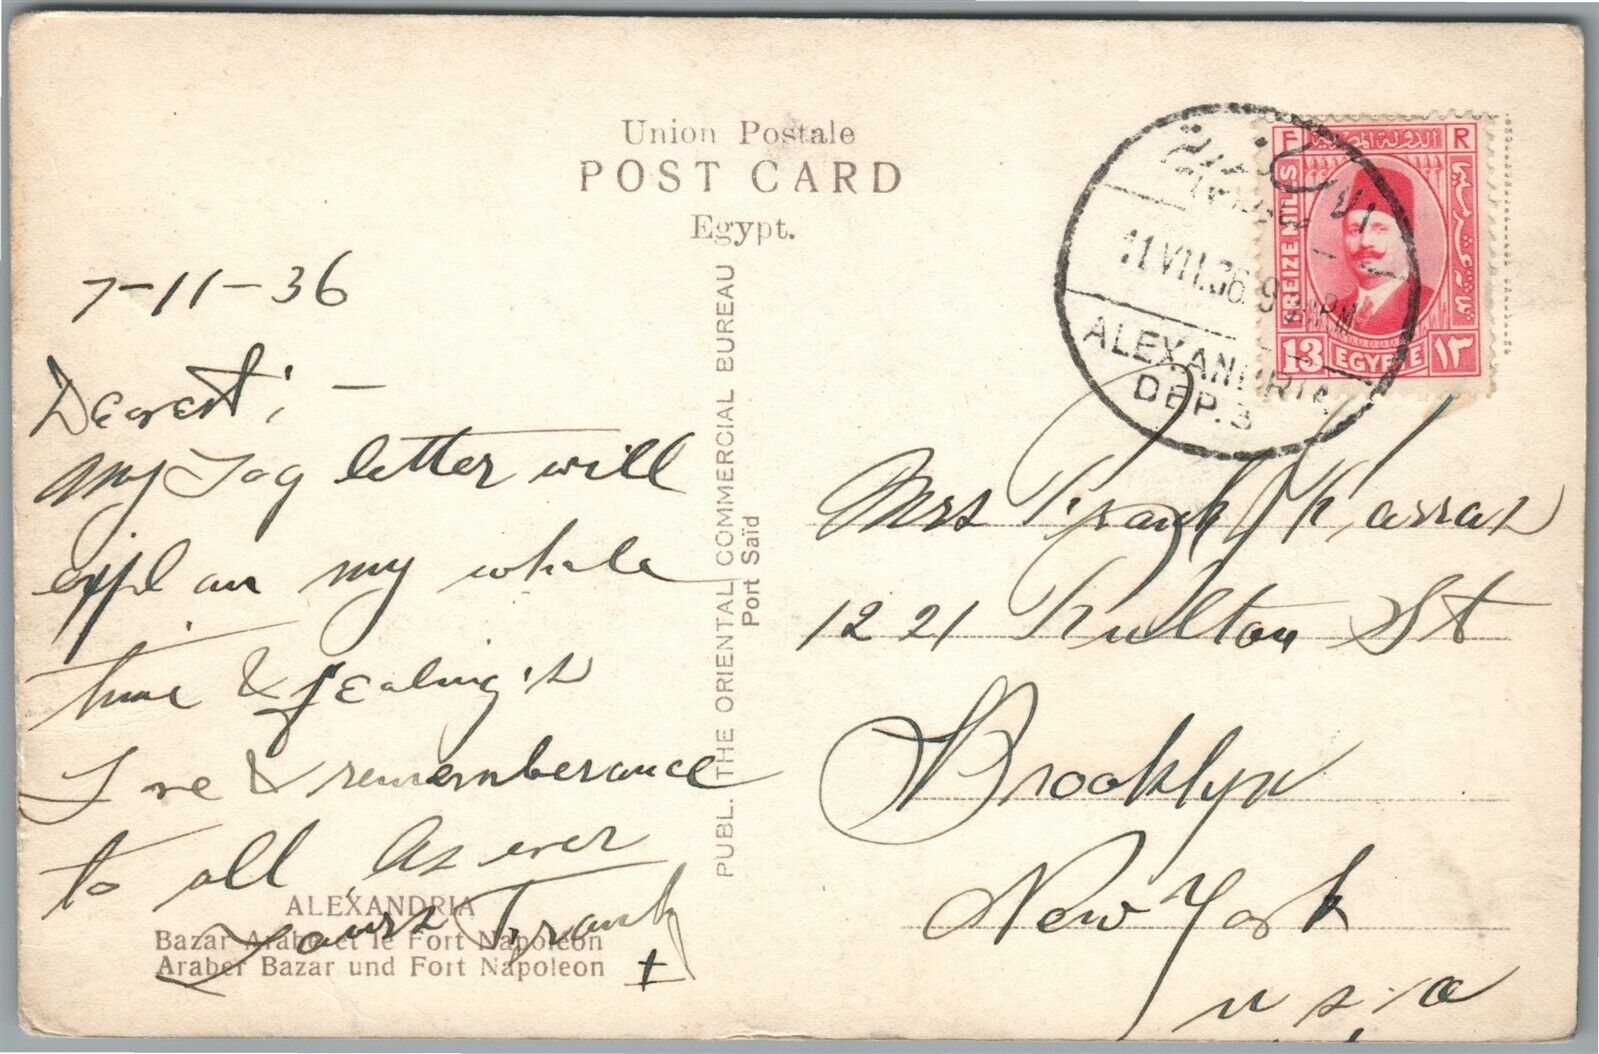 Union Postale
POST CARD
Egypt.
7-11-36
Dearest; —
My Log letter will
expl an my whole
time & fealing's
Love & rememberance
to all As ever
Yours Frank
ALEXANDRIA
Bazar Arabe et le Fort Napoléon
Araber Bazar und Fort Napoleon
PUBL. THE ORIENTAL COMMERCIAL BUREAU
Port Saïd
11 VII.36. 9
ALEXANDRIA
DEP. 3
F R
الدولة المصرية
TREIZE MILLS
13 EGYPTE ١٣
Mrs Frank Karras
1221 Fulton St
Brooklyn
New York
U.S.A